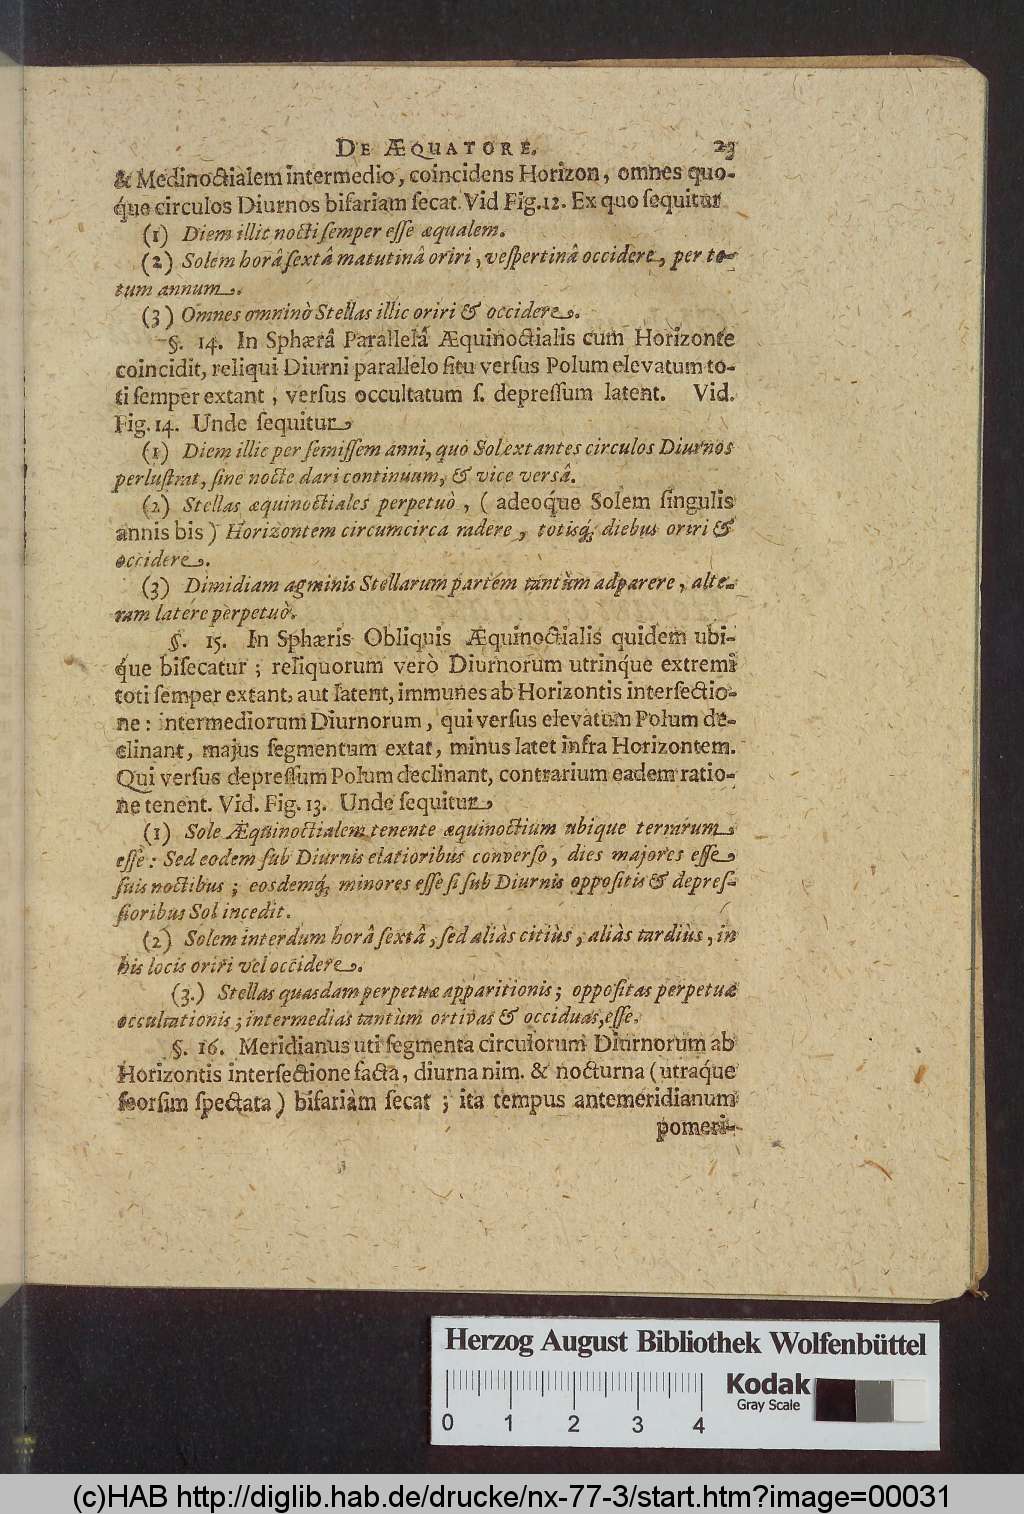 DE ÆQUATORE. 23
& Medinoctialem intermedio, coincidens Horizon, omnes quo-
q́ue circulos Diurnos bifariam ſecat. Vid Fig. 12. Ex quo ſequitur
(1) Diem illic nocti ſemper eſſe æqualem.
(2) Solem horâ ſextâ matutinâ oriri, veſpertinâ occidere, per to-
tum annum.
(3) Omnes omninò Stellas illic oriri & occidere.
§. 14. In Sphærâ Parallelâ Æquinoctialis cum Horizonte
coincidit, reliqui Diurni parallelo ſitu verſus Polum elevatum to-
ti ſemper extant, verſus occultatum ſ. depreſſum latent. Vid.
Fig. 14. Unde ſequitur
(1) Diem illic per ſemiſſem anni, quo Sol extantes circulos Diurnos
perluſtrat, ſine nocte dari continuum, & vice versâ.
(2) Stellas æquinoctiales perpetuò, ( adeoq́ue Solem ſingulis
annis bis ) Horizontem circumcirca radere, totisq́; diebus oriri &
occidere.
(3) Dimidiam agminis Stellarum partem tantùm adparere, alte-
ram latere perpetuò.
§. 15. In Sphæris Obliquis Æquinoctialis quidem ubi-
q́ue biſecatur ; reliquorum verò Diurnorum utrinq́ue extremi
toti ſemper extant, aut latent, immunes ab Horizontis interſectio-
ne : intermediorum Diurnorum, qui verſus elevatum Polum de-
clinant, majus ſegmentum extat, minus latet infra Horizontem.
Qui verſus depreſſum Polum declinant, contrarium eadem ratio-
ne tenent. Vid. Fig. 13. Unde ſequitur
(1) Sole Æquinoctialem tenente æquinoctium ubique terrarum
eſſe : Sed eodem ſub Diurnis elatioribus converſo, dies majores eſſe
ſuis noctibus ; eosdemq́; minores eſſe ſi ſub Diurnis oppoſitis & depreſ-
ſioribus Sol incedit.
(2) Solem interdum horâ ſextâ, ſed aliàs citiùs, aliàs tardiùs, in
his locis oriri vel occidere.
(3.) Stellas quasdam perpetuæ apparitionis ; oppoſitas perpetuæ
occultationis ; intermedias tantùm ortivas & occiduas, eſſe.
§. 16. Meridianus uti ſegmenta circulorum Diurnorum ab
Horizontis interſectione facta, diurna nim. & nocturna (utraq́ue
ſeorſim ſpectata) bifariàm ſecat ; ita tempus antemeridianum
pomeri-
Herzog August Bibliothek Wolfenbüttel
Kodak
Gray Scale
0 1 2 3 4
(c)HAB http://diglib.hab.de/drucke/nx-77-3/start.htm?image=00031